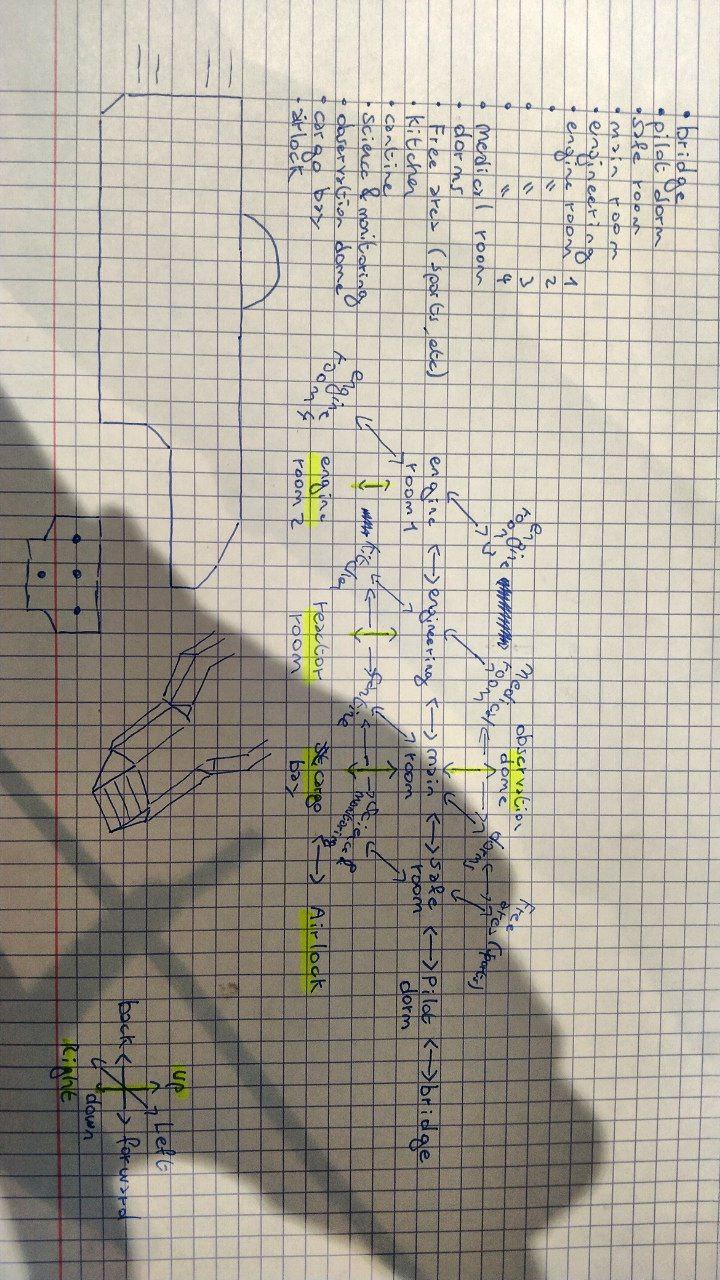 • bridge
• pilot dorm
• safe room
• main room
• engineering
• engine room 1
• " 2
• " 3
• " 4
• medical room
• dorms
• Free area (sports, etc)
• Kitchen
• cantine
• science & monitoring
• observation dome
• cargo bay
• airlock
engine
room 3
medical
room
observation
dome
dorms
Free
area (sports)
engine
room 1
engineering
main
room
safe
room
pilot
dorm
bridge
engine
room 4
kitchen
cantine
science &
monitoring
engine
room 2
reactor
room
cargo
bay
Airlock
up
Left
back
forward
down
Right